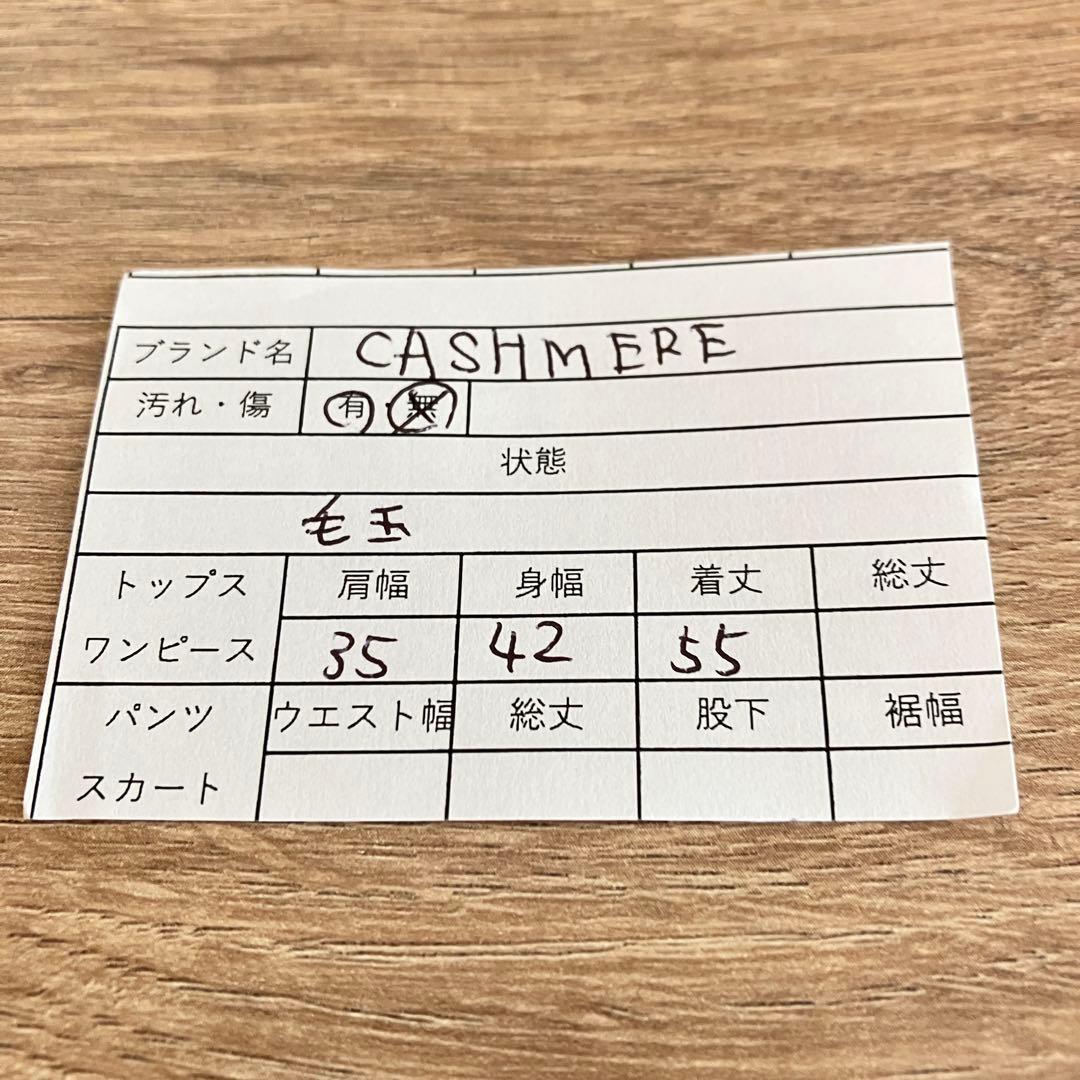 ブランド名 CASHMERE
汚れ・傷 有・無
状態
毛玉
トップス 肩幅 身幅 着丈 総丈
ワンピース 35 42 55
パンツ ウエスト幅 総丈 股下 裾幅
スカート